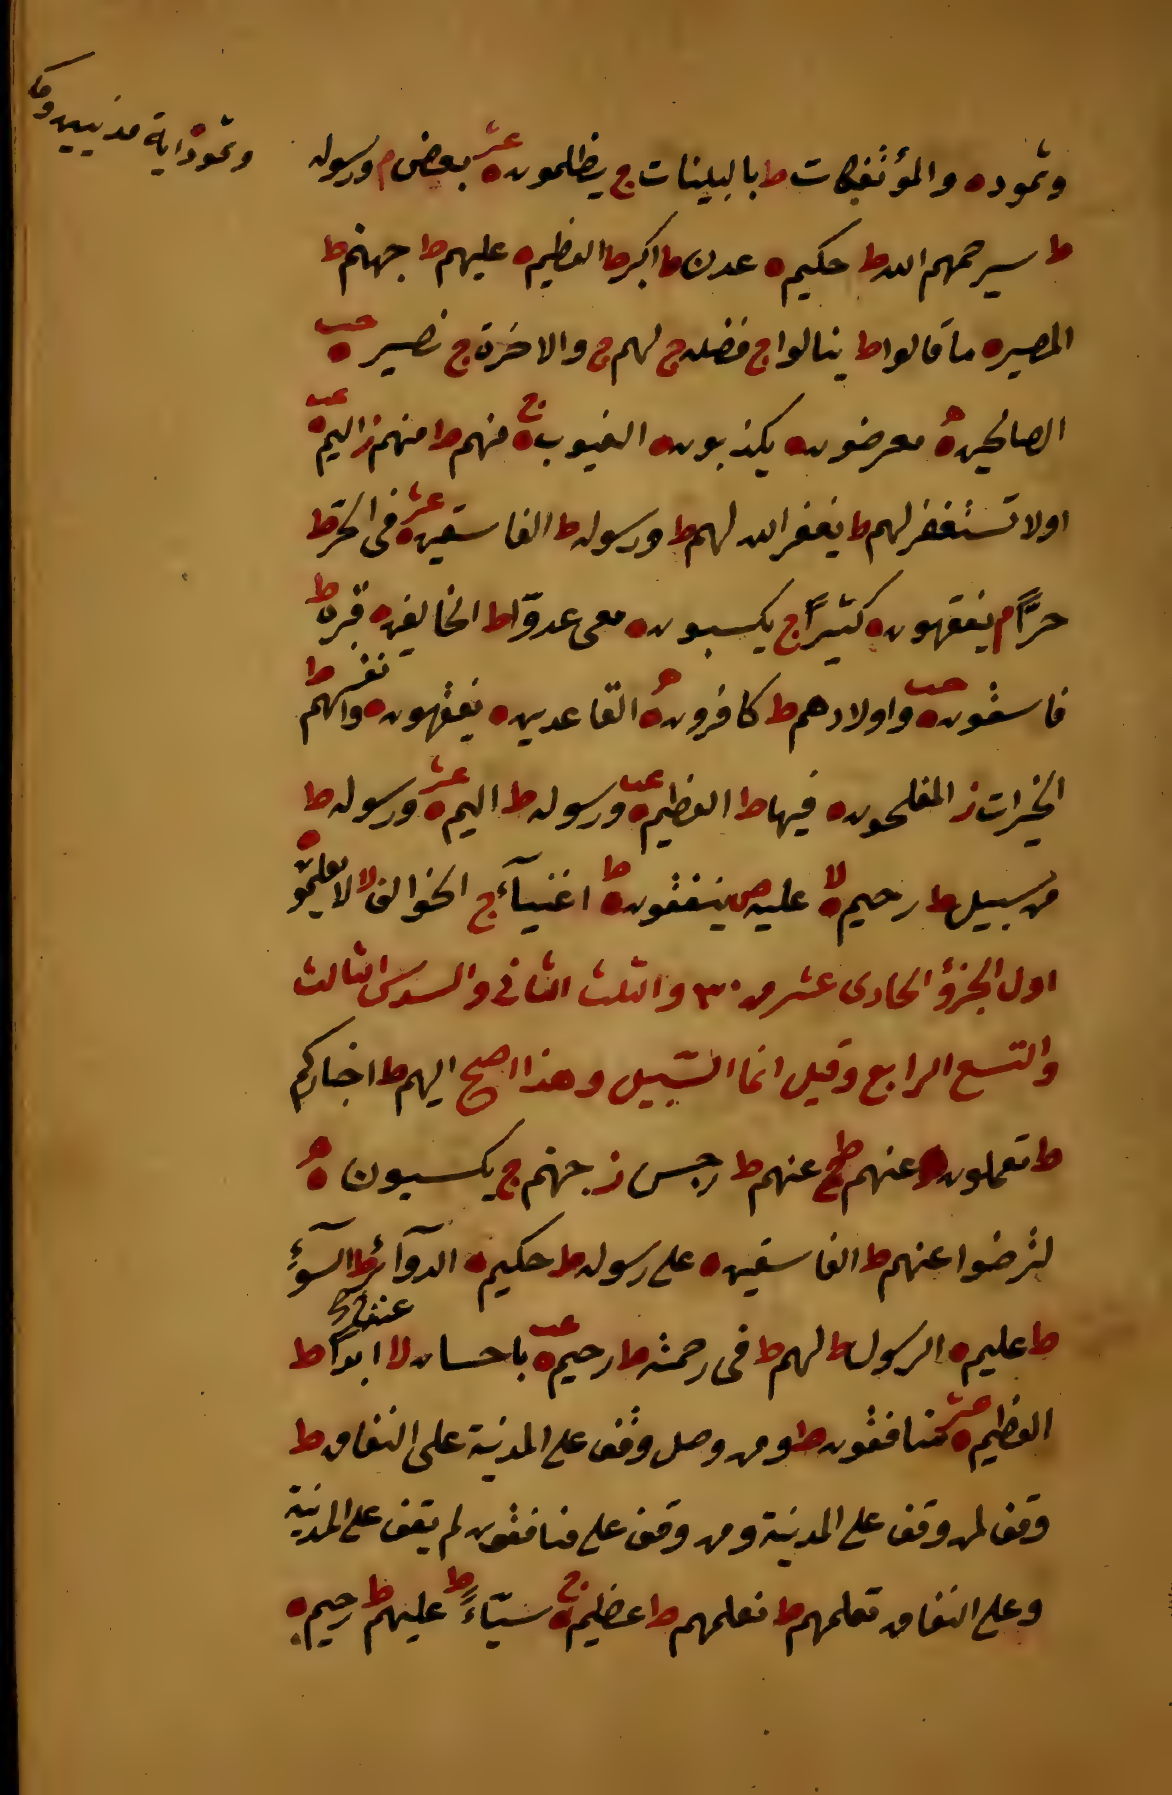 وثمود ه والمؤتفكات ط بالبينات ج يظلمون ه عشر بعض م ورسوله
ط سيرحمهم الله ط حكيم ه عدن ط اكبر ط العظيم ه عليهم ط جهنم ط
المصير ه ما قالوا ط ينالوا ج فضله ج لهم ج والاخرة ج نصير ه حب
الصالحين ه ه معرضون ه يكذبون ه الغيوب ه ج منهم ط منهم ز اليم ه عب
اولا تستغفر لهم ط يغفر الله لهم ط ورسوله ط الفاسقين ه عشر فى الحر ط
حرًّا م يفقهون ه كثيرًا ج يكسبون ه معى عدوّا ط الخالفين ه قبره ط
فاسقون ه حب واولادهم ط كافرون ه ه القاعدين ه يفقهون ه وانفسهم ط
الخيرات ز المفلحون ه فيها ط العظيم ه عب ورسوله ط اليم ه عشر ورسوله ط
من سبيل ط رحيم ه لا عليه ص ينفقون ه ط اغنيآء ج الخوالف لا لا يعلمون ه
اول الجزؤ الحادى عشر من ٣٠ والثلث الثانى والسدس الثالث
والتسع الرابع وقيل انما السّبيل وهذا اصح اليهم ط اخباركم
ط تعملون ه عنهم ط ج عنهم ط رجس ز جهنم ج يكسبون ه ه
لترضوا عنهم ط الفاسقين ه على رسوله ط حكيم ه الدوآئر ط السوءِ
ط عليم ه الرسول ط لهم ط فى رحمته ط رحيم ه عب باحسان لا عنه ابدًا ط
العظيم ه عشر منافقون ط ومن وصل وقف على المدينة على النفاق ط
وقف لمن وقف على المدينة ومن وقف على منافقون لم يقف على المدينة
وعلى النفاق تعلمهم ط نعلمهم ط عظيم ه ج سيّئاً ط عليهم ط رحيم ه
وثمود اية